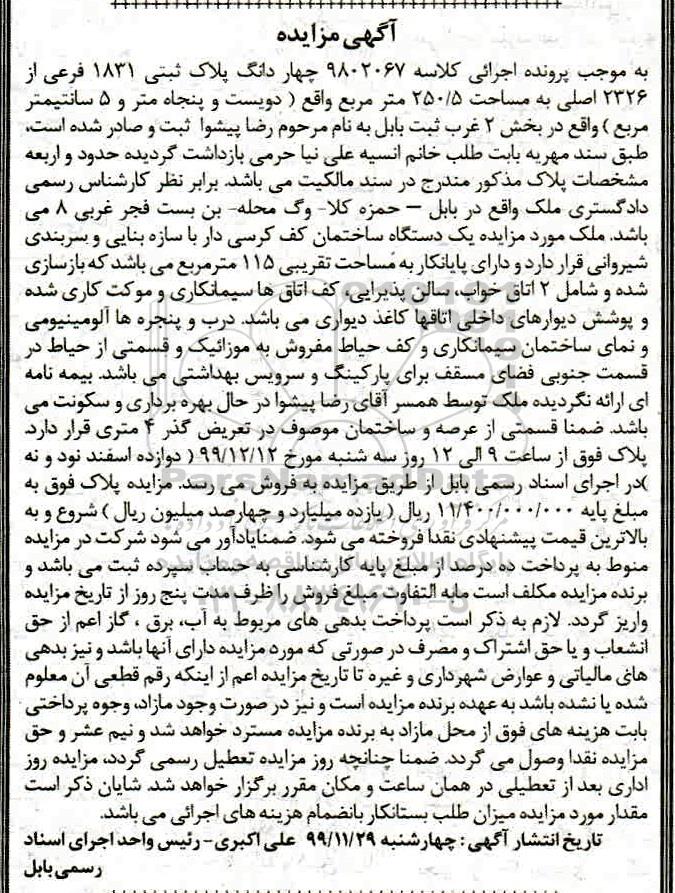 آگهی مزایده
به موجب پرونده اجرائی کلاسه ۹۸۰۲۰۶۷ چهار دانگ پلاک ثبتی ۱۸۳۱ فرعی از
۲۳۲۶ اصلی به مساحت ۲۵۰/۵ متر مربع واقع ( دویست و پنجاه متر و ۵ سانتیمتر
مربع ) واقع در بخش ۲ غرب ثبت بابل به نام مرحوم رضا پیشوا ثبت و صادر شده است،
طبق سند مهریه بابت طلب خانم انسیه علی نیا حرمی بازداشت گردیده حدود و اربعه
مشخصات پلاک مذکور مندرج در سند مالکیت می باشد. برابر نظر کارشناس رسمی
دادگستری ملک واقع در بابل – حمزه کلا- وگ محله- بن بست فجر غربی ۸ می
باشد. ملک مورد مزایده یک دستگاه ساختمان کف کرسی دار با سازه بنایی و سربندی
شیروانی قرار دارد و دارای پایانکار به مساحت تقریبی ۱۱۵ مترمربع می باشد که بازسازی
شده و شامل ۲ اتاق خواب، سالن پذیرایی، کف اتاق ها سیمانکاری و موکت کاری شده
و پوشش دیوارهای داخلی اتاقها کاغذ دیواری می باشد. درب و پنجره ها آلومینیومی
و نمای ساختمان سیمانکاری و کف حیاط مفروش به موزائیک و قسمتی از حیاط در
قسمت جنوبی فضای مسقف برای پارکینگ و سرویس بهداشتی می باشد. بیمه نامه
ای ارائه نگردیده ملک توسط همسر آقای رضا پیشوا در حال بهره برداری و سکونت می
باشد. ضمنا قسمتی از عرصه و ساختمان موصوف در تعریض گذر ۴ متری قرار دارد.
پلاک فوق از ساعت ۹ الی ۱۲ روز سه شنبه مورخ ۹۹/۱۲/۱۲ ( دوازده اسفند نود و نه
)در اجرای اسناد رسمی بابل از طریق مزایده به فروش می رسد. مزایده پلاک فوق به
مبلغ پایه ۱۱/۴۰۰/۰۰۰/۰۰۰ ریال ( یازده میلیارد و چهارصد میلیون ریال ) شروع و به
بالاترین قیمت پیشنهادی نقدا فروخته می شود. ضمنایادآور می شود شرکت در مزایده
منوط به پرداخت ده درصد از مبلغ پایه کارشناسی به حساب سپرده ثبت می باشد و
برنده مزایده مکلف است مابه التفاوت مبلغ فروش را ظرف مدت پنج روز از تاریخ مزایده
واریز گردد. لازم به ذکر است پرداخت بدهی های مربوط به آب، برق ، گاز اعم از حق
انشعاب و یا حق اشتراک و مصرف در صورتی که مورد مزایده دارای آنها باشد و نیز بدهی
هائی مالیاتی و عوارض شهرداری و غیره تا تاریخ مزایده اعم از اینکه رقم قطعی آن معلوم
شده یا نشده باشد به عهده برنده مزایده است و نیز در صورت وجود مازاد، وجوه پرداختی
بابت هزینه های فوق از محل مازاد به برنده مزایده مسترد خواهد شد و نیم عشر و حق
مزایده نقدا وصول می گردد. ضمنا چنانچه روز مزایده تعطیل رسمی گردد، مزایده روز
اداری بعد از تعطیلی در همان ساعت و مکان مقرر برگزار خواهد شد. شایان ذکر است
مقدار مورد مزایده میزان طلب بستانکار بانضمام هزینه های اجرائی می باشد.
تاریخ انتشار آگهی: چهارشنبه ۹۹/۱۱/۲۹ علی اکبری- رئیس واحد اجرای اسناد
رسمی بابل
ParsNamadData